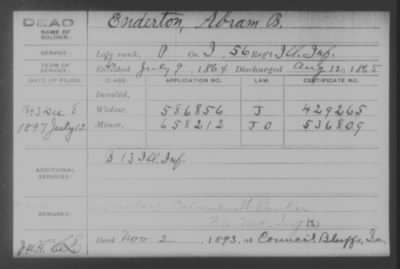 DEAD
NAME OF SOLDIER: Enderton, Abram B.
SERVICE: Late rank, P Co. I, 56 Reg't Ill. Inf.
TERM OF SERVICE: Enlisted July 9, 1864 Discharged Aug 12, 1865
DATE OF FILING. APPLICATION NO. LAW. CERTIFICATE NO.
Invalid,
1893 Dec 8 Widow, 586856 J 429265
1897 July 12 Minor, 658212 J O 536809
ADDITIONAL SERVICES: B 13 Ill. Inf.
REMARKS:
Died Nov. 2, 1893, at Council Bluffs, Ia